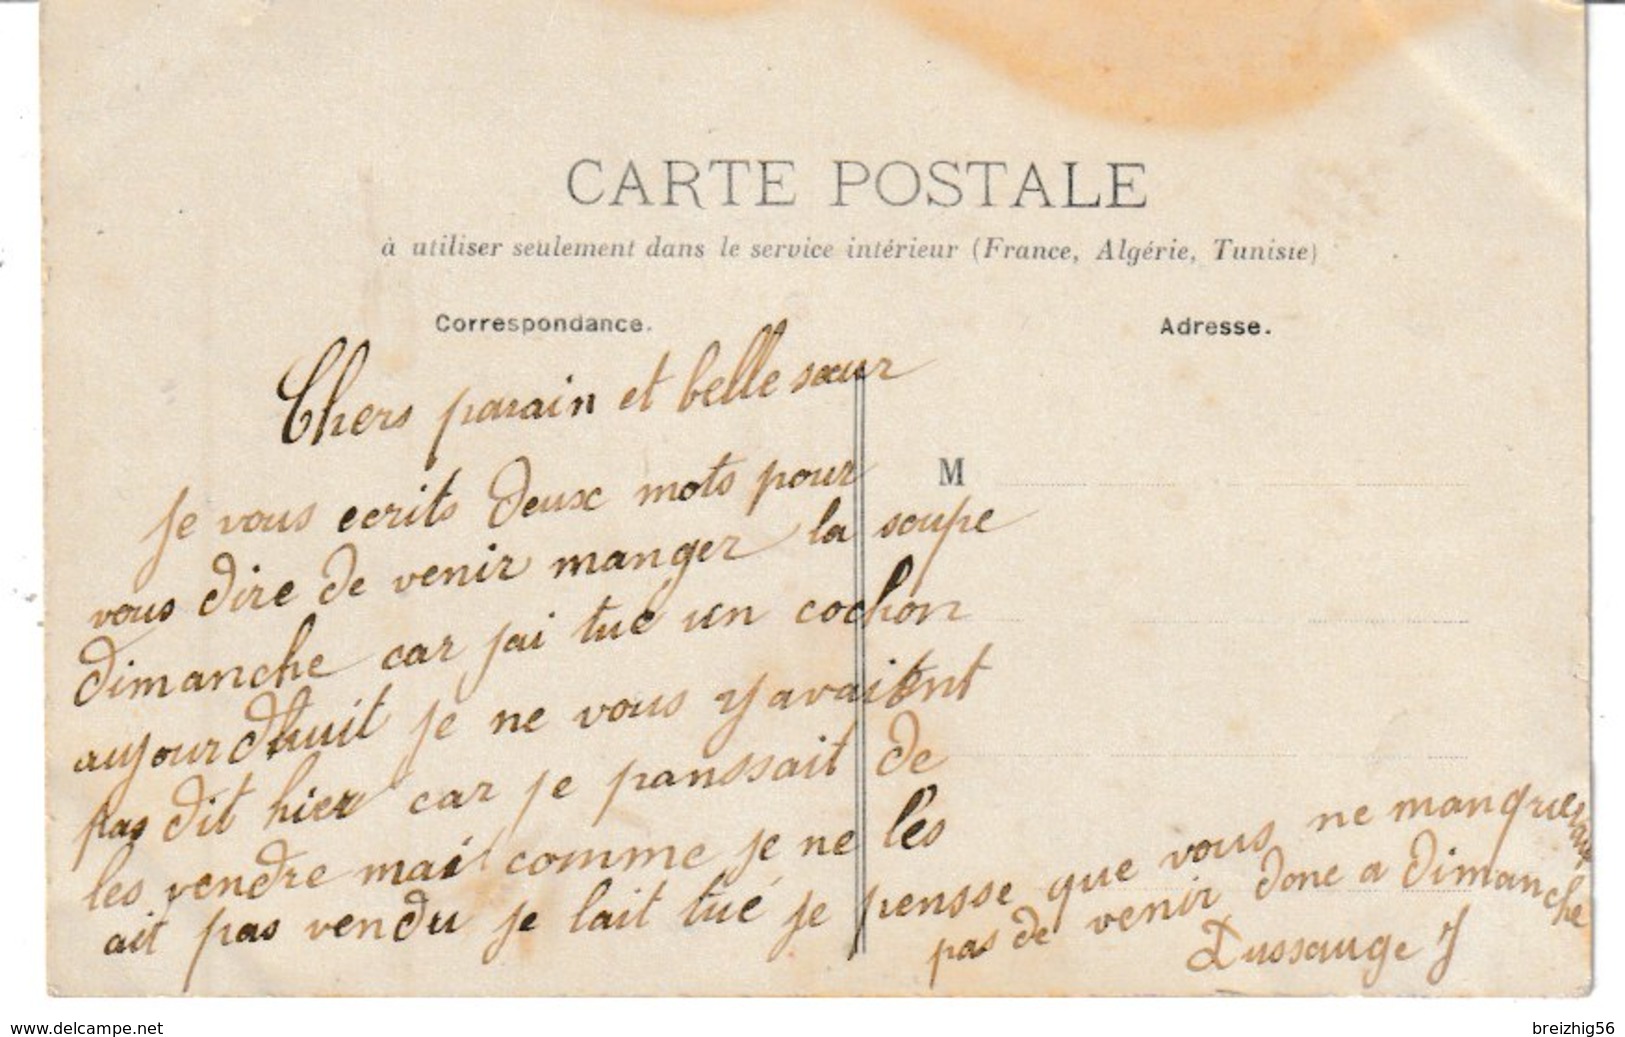 CARTE POSTALE
à utiliser seulement dans le service intérieur (France, Algérie, Tunisie)
Correspondance.
Adresse.
M
Chers parain et belle sœur
Je vous ecrits deux mots pour
vous dire de venir manger la soupe
dimanche car jai tué un cochon
aujourdhuit je ne vous y avaitent
pas dit hier car je panssait de
les vendre mai comme je ne les
ait pas vendu je lait tué je pensse que vous ne manquerai
pas de venir donc a dimanche
Dussauge J
www.delcampe.net
breizhig56